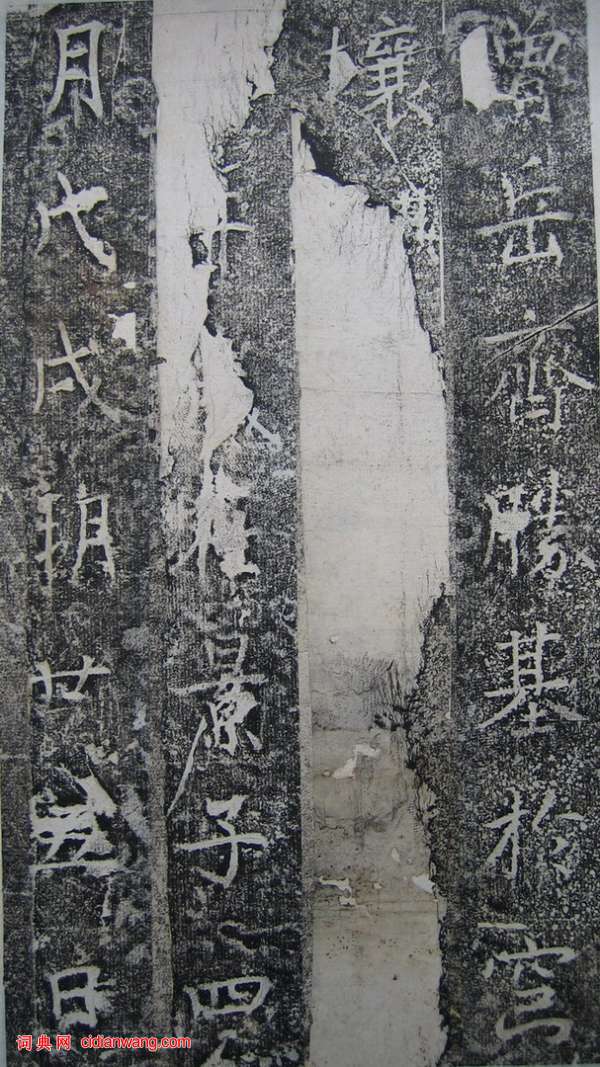 曾岳齊勝基於穹
壤
十 在景子四
月戊戌朔廿五日
词典网 cidianwang.com